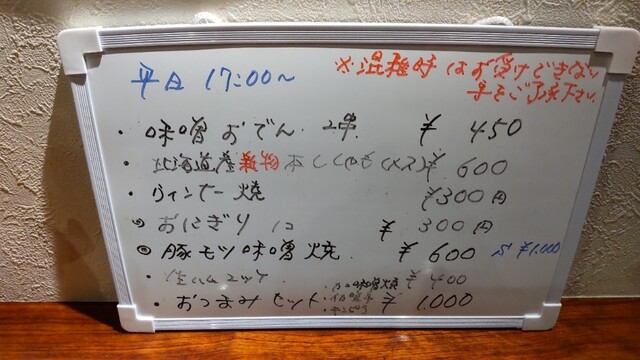 平日 17:00~
※混雑時はお受けできない
事をご了承下さい.
・味噌おでん. 2串. ¥450
・北海道産新物本ししゃも(メス)¥600
・ウィンナー焼 ¥300円
・おにぎり 1コ ¥300円
・豚モツ味噌焼. ¥600 ¥1.000
¥400
・おつまみセット ¥1.000
味噌焼